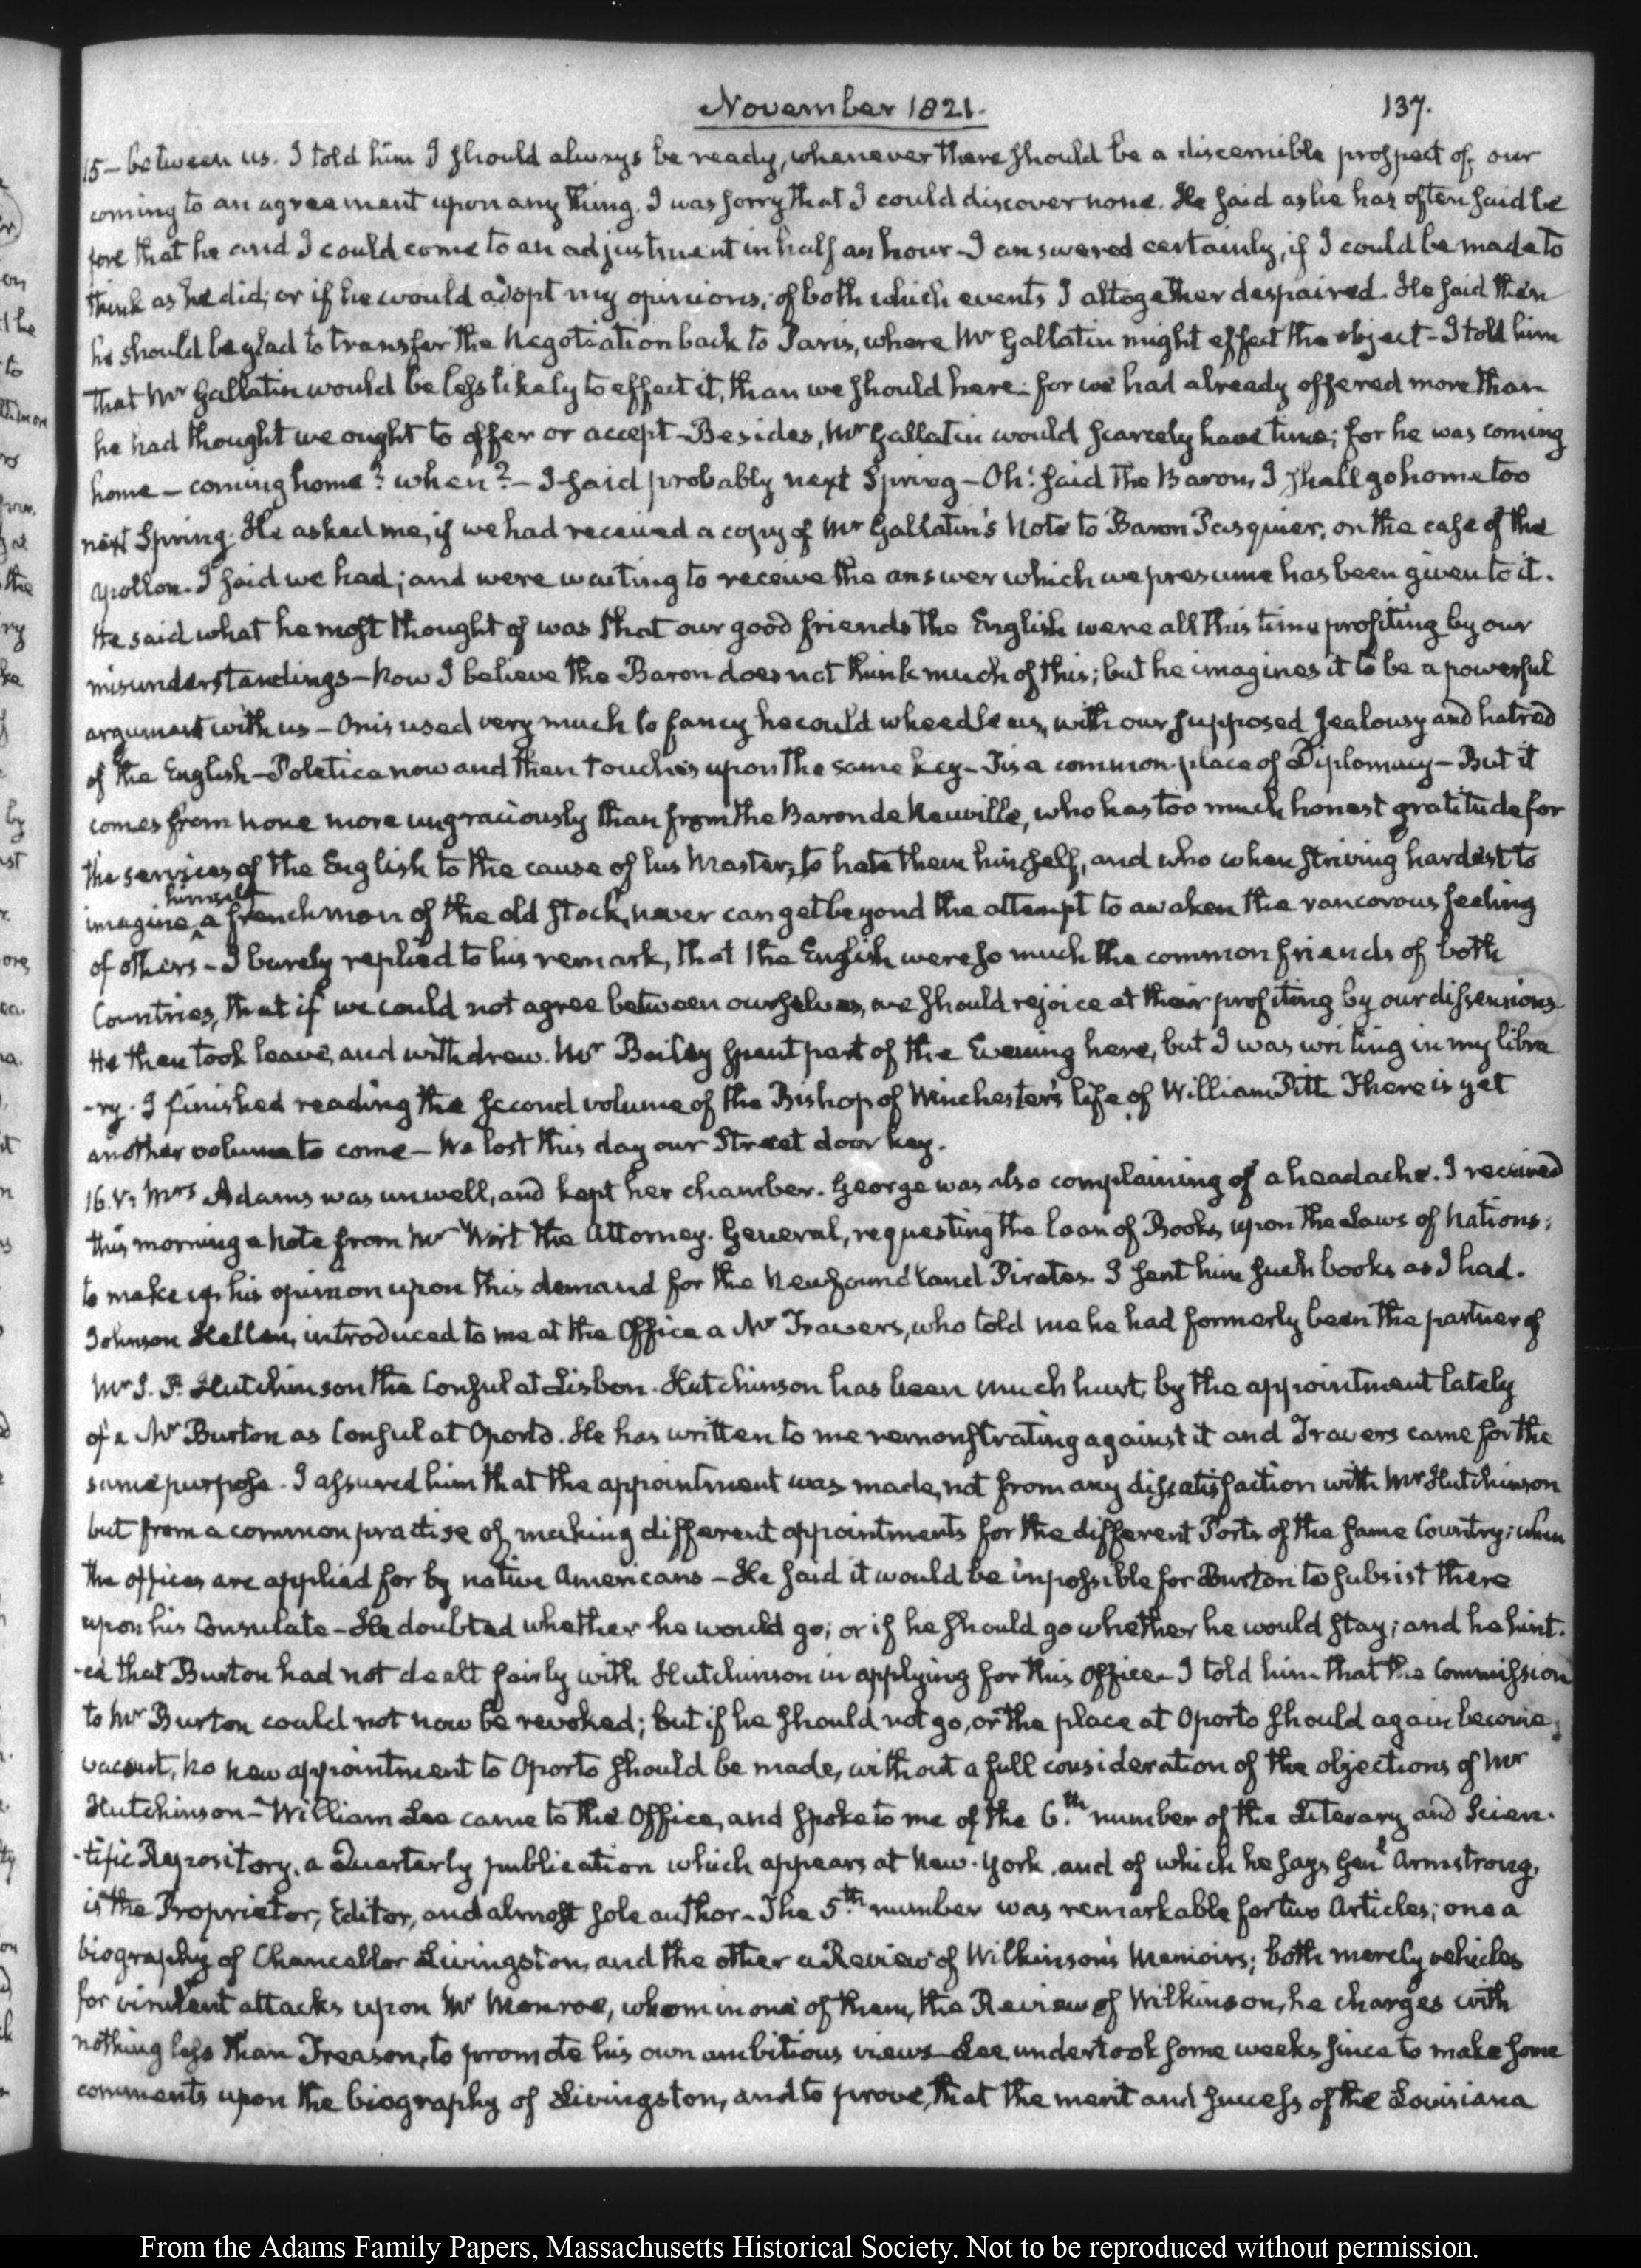 November 1821.
137.
15 – between us. I told him I should always be ready, whenever there should be a discernible prospect of our
coming to an agreement upon any thing. I was sorry that I could discover none. He said as he has often said be
fore that he and I could come to an adjustment in half an hour – I answered certainly, if I could be made to
think as he did; or if he would adopt my opinions; of both which events I altogether despaired. He said then
he should be glad to transfer the Negotiation back to Paris, where Mr Gallatin might effect the object – I told him
that Mr Gallatin would be less likely to effect it, than we should here – for we had already offered more than
he had thought we ought to offer or accept – Besides, Mr Gallatin would scarcely have time; for he was coming
home – coming home? when? – I said probably next Spring – Oh! said the Baron, I shall go home too
next Spring. He asked me, if we had received a copy of Mr Gallatin's Note to Baron Pasquier, on the case of the
Apollon. I said we had; and were waiting to receive the answer which we presume has been given to it.
He said what he most thought of was that our good friends the English were all this time profiting by our
misunderstandings – Now I believe the Baron does not think much of this; but he imagines it to be a powerful
argument with us – Onis used very much to fancy he could wheedle us, with our supposed jealousy and hatred
of the English – Poletica now and then touches upon the same key – Tis a common-place of Diplomacy – But it
comes from none more ungraciously than from the Baron de Neuville, who has too much honest gratitude for
the services of the English to the cause of his Master, to hate them himself, and who when striving hardest to
imagine himself a frenchman of the old stock, never can get beyond the attempt to awaken the rancorous feeling
of others – I barely replied to his remark, that the English were so much the common friends of both
Countries, that if we could not agree between ourselves, we should rejoice at their profiting by our dissensions.
He then took leave, and withdrew. Mr Bailey spent part of the Evening here, but I was writing in my libra
-ry. I finished reading the second volume of the Bishop of Winchester's life of William Pitt. There is yet
another volume to come – We lost this day our Street door key.
16. V: Mrs Adams was unwell, and kept her chamber. George was also complaining of a headache. I received
this morning a Note from Mr Wirt the Attorney-General, requesting the loan of Books upon the Laws of Nations;
to make up his opinion upon this demand for the Newfoundland Pirates. I sent him such books as I had.
Johnson Hellen, introduced to me at the Office a Mr Travers, who told me he had formerly been the partner of
Mr I. P. Hutchinson the Consul at Lisbon. Hutchinson has been much hurt, by the appointment lately
of a Mr Burton as Consul at Oporto. He has written to me remonstrating against it and Travers came for the
same purpose. I assured him that the appointment was made, not from any dissatisfaction with Mr Hutchinson
but from a common practise of making different appointments for the different Ports of the same Country; when
the offices are applied for by native Americans – He said it would be impossible for Burton to subsist there
upon his Consulate – He doubted whether he would go; or if he should go whether he would stay; and he hint-
-ed that Burton had not dealt fairly with Hutchinson in applying for this Office – I told him that the Commission
to Mr Burton could not now be revoked; but if he should not go, or the place at Oporto should again become
vacant, no new appointment to Oporto should be made, without a full consideration of the objections of Mr
Hutchinson – William Lee came to the Office, and spoke to me of the 6.th number of the Literary and Scien-
-tific Repository, a Quarterly publication which appears at New-York, and of which he says Genl Armstrong,
is the Proprietor, Editor, and almost sole author – The 5.th number was remarkable for two Articles; one a
biography of Chancellor Livingston, and the other a Review of Wilkinson's Memoirs; both merely vehicles
for virulent attacks upon Mr Monroe, whom in one of them, the Review of Wilkinson, he charges with
nothing less than Treason, to promote his own ambitious views – Lee undertook some weeks since to make some
comments upon the biography of Livingston, and to prove, that the merit and success of the Louisiana
From the Adams Family Papers, Massachusetts Historical Society. Not to be reproduced without permission.